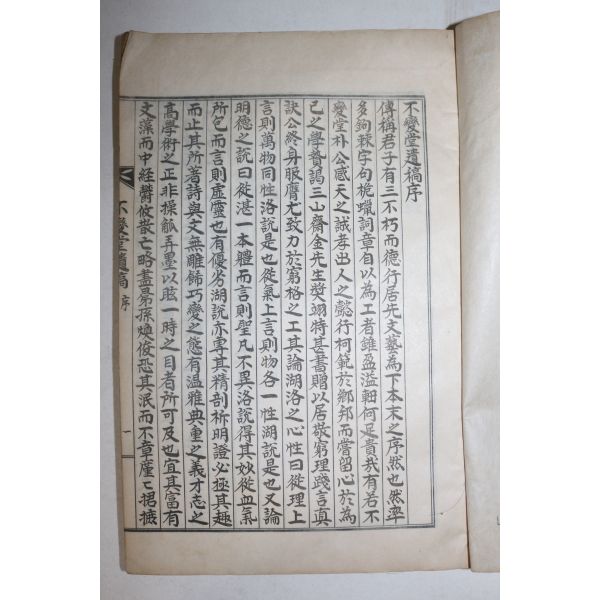 不變堂遺稿序
傳稱君子有三不朽而德行居先文藝為下本末之序然也然率
多鉤棘字句梔蠟詞章自以為工者雖盈溢軸何足貴哉有若不
變堂朴公感天之誠孝出人之懿行柯範於鄕邦而嘗留心於為
己之學贄謁三山齋金先生奬翊特甚書贈以居敬窮理踐言眞
訣公終身服膺尤致力於窮格之工其論湖洛之心性曰從理上
言則萬物同性洛說是也從氣上言則物各一性湖說是也又論
明德之說曰從湛一本體而言則聖凡不異洛說得其妙從血氣
所包而言則虛靈也有優劣湖說亦專其精剖析明證必極其趣
而止其所著詩與文無雕餙巧變之態有溫雅典重之義才志之
高學術之正非操觚弄墨以眩一時之目者所可及也宜其富有
文藻而中經欝攸散亡略盡昴孫煥俊恐其泯而不章廑廑捃摭
不變堂遺稿 序 一